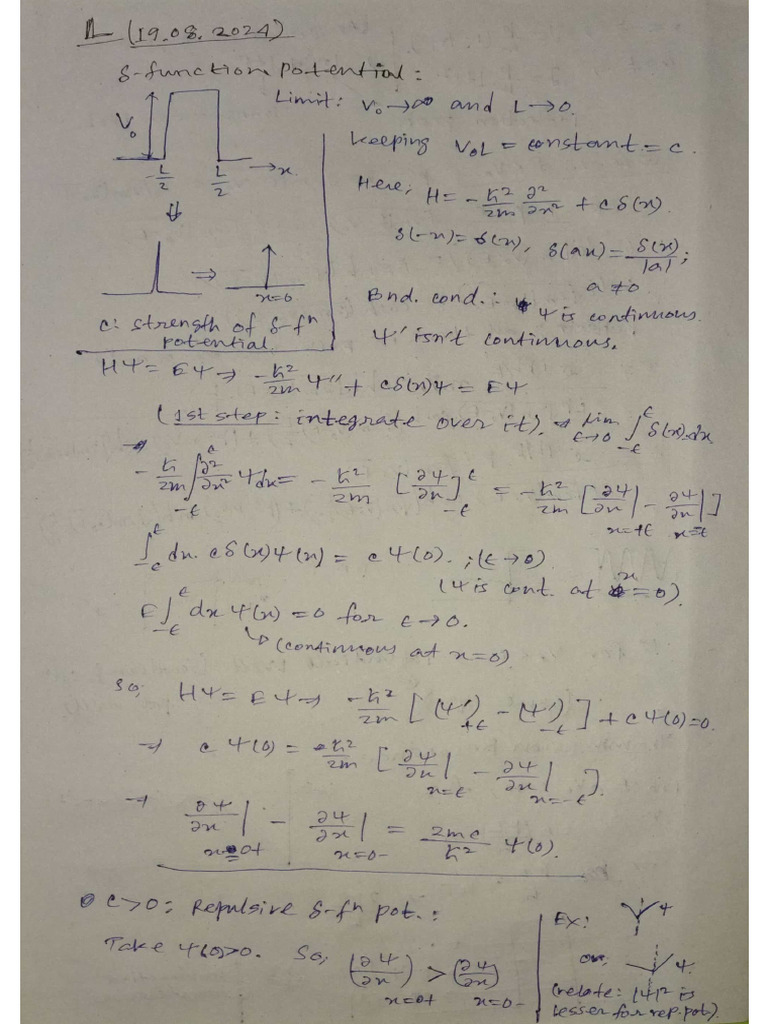 L (19.08.2024)
δ-function Potential:
Limit: V₀→∞ and L→0.
V₀
-L/2 L/2 →x
keeping V₀L = constant = c.
Here, H = -ℏ²/2m ∂²/∂x² + cδ(x)
δ(-x) = δ(x), δ(ax) = δ(x)/|a|;
a≠0
⇓
⇒
x=0
Bnd. cond.: ψ is continuous.
ψ' isn't continuous.
c: strength of δ-fⁿ
potential.
Hψ = Eψ ⇒ -ℏ²/2m ψ'' + cδ(x)ψ = Eψ
(1st step: integrate over it). ⇒ lim ε→0 ∫_{-ε}^{ε} δ(x).dx
→
-ℏ/2m ∫_{-ε}^{ε} ∂²/∂x² ψdx = -ℏ²/2m [∂ψ/∂x]_{-ε}^{ε} = -ℏ²/2m [∂ψ/∂x|_{x=+ε} - ∂ψ/∂x|_{x=-ε}]
∫_{-ε}^{ε} dx. cδ(x)ψ(x) = cψ(0). ; (ε→0)
(ψ is cont. at x=0).
E∫_{-ε}^{ε} dx ψ(x) = 0 for ε→0.
↳ (continuous at x=0)
so, Hψ = Eψ ⇒ -ℏ²/2m [(ψ')_{+ε} - (ψ')_{-ε}] + cψ(0)=0.
→ cψ(0) = ℏ²/2m [∂ψ/∂x|_{x=ε} - ∂ψ/∂x|_{x=-ε}].
→ ∂ψ/∂x|_{x=0+} - ∂ψ/∂x|_{x=0-} = 2mc/ℏ² ψ(0).
c>0: Repulsive δ-fⁿ pot.:
Take ψ(0)>0. So, (∂ψ/∂x)_{x=0+} > (∂ψ/∂x)_{x=0-}
Ex: ψ
or, ψ.
(relate: |ψ|² is
lesser for rep. pot.)